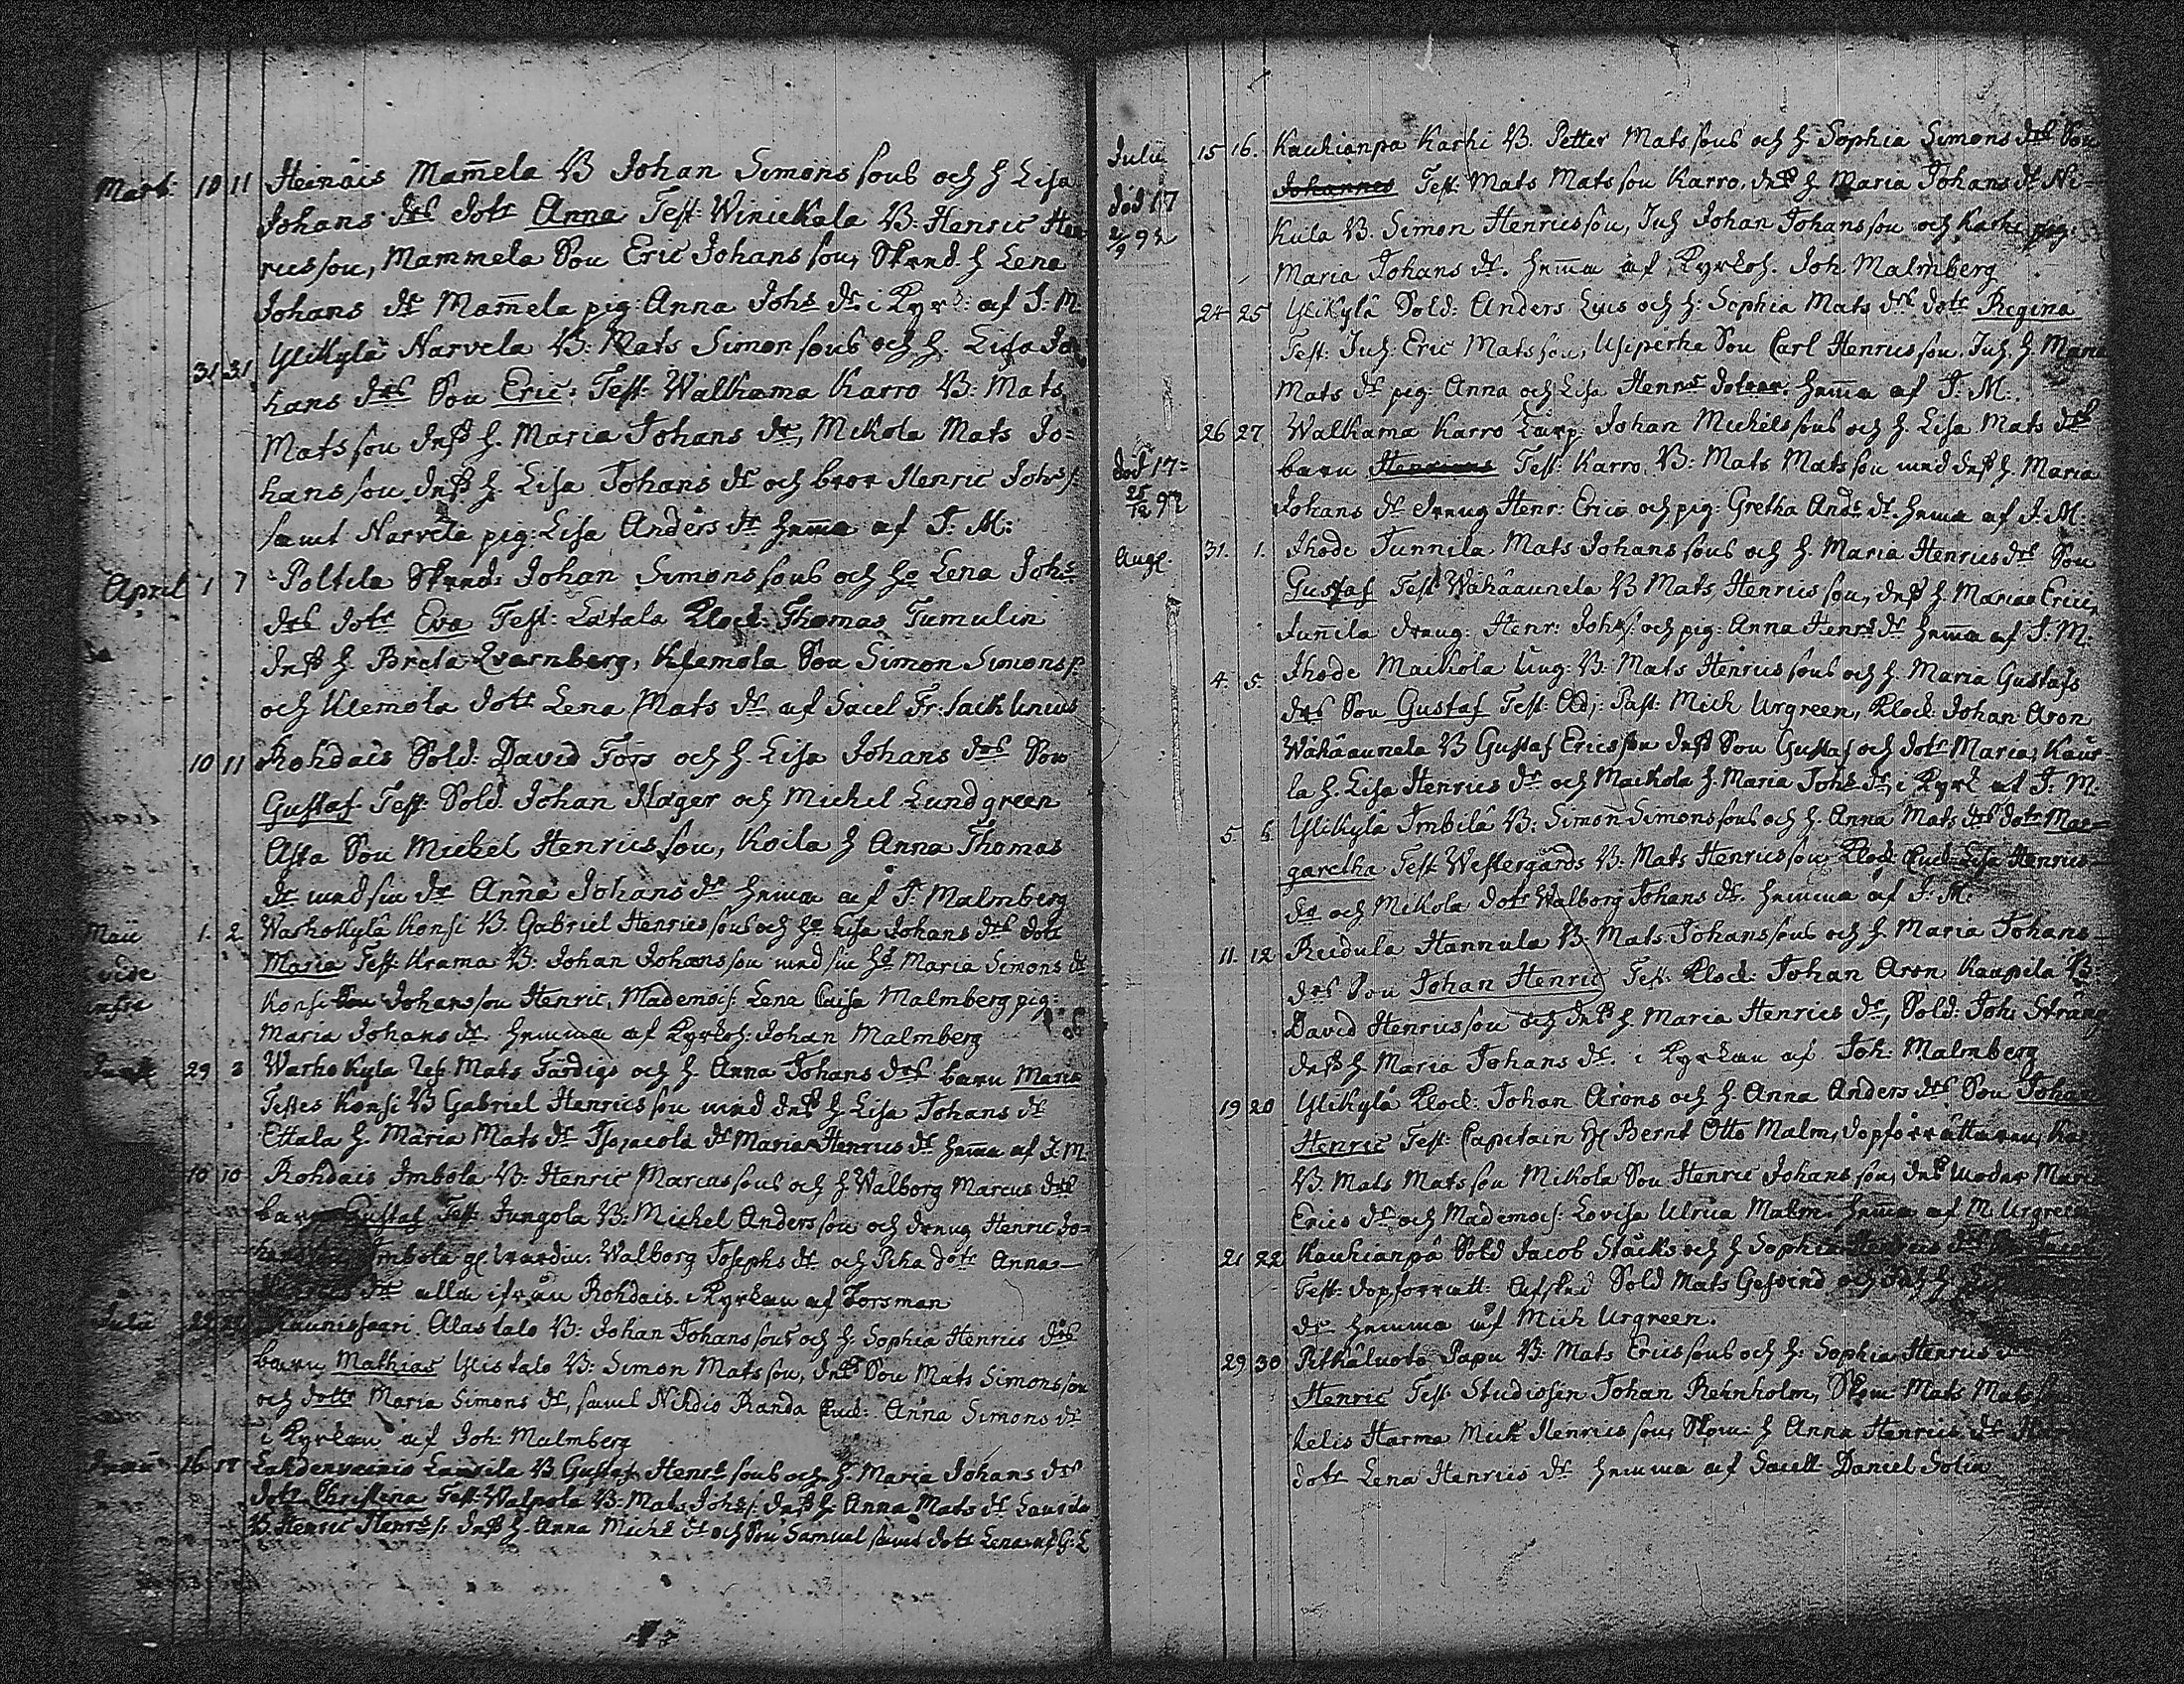 Mart: 10 11 Heinäis Mam̄ela B Johan Simons sons och h Lisa
Johans drs dotr Anna Test: Winickala B: Henric Hen
rics son, Mammela Son Eric Johans son, Skrad. h Lena
Johans dr Mam̄ela pig: Anna Johs dr i Kyrk: af J: M:
31 31 Ylikylä Narvela B: Mats Simon sons och h. Lisa Jo
hans drs Son Eric: Test: Walkama Karro B: Mats
Mats son dess h. Maria Johans dr, Mikola Mats Jo=
hans son dess h. Lisa Johans dr och bror Henric Johs s:
samt Narvela pig: Lisa Anders dr hem̄a af J: M:
April 1 7 Poltila Skrad: Johan Simons sons och ho Lena Johs
drs dotr Eva Test: Latala Klock: Thomas Tumulin
dess h. Breta Qvarnberg, Klemola Son Simon Simons s:
och Klemola dotr Lena Mats dr af Sacel Fr: Sacklinius
10 11 Rohdais Sold: David Fors och h. Lisa Johans drs Son
Gustaf Test: Sold. Johan Hager och Michel Lundgreen
Asta Son Michel Henrics son, Koila h Anna Thomas
dr med sin dr Anna Johans dr hemma af J: Malmberg
Maii 1. 2 Warhokylä Konsi B: Gabriel Henrics sons och ho Lisa Johans drs dotr
vide Maria Test: Krama B: Johan Johans son med sin ho Maria Simons dr
infra Konsi Son Johans son Henric, Mademois: Lena Caisa Malmberg pig:
Maria Johans dr hemma af Kyrkoh: Johan Malmberg
29 2 Warhokyla Mats Färdigs och h. Anna Johans drs barn Maria
Testes Konsi B Gabriel Henrics son med dess h. Lisa Johans dr
Ettala h. Maria Mats dr dr Maria Henrics dr hem̄a af J. M.
10 10 Rohdais Imbola B: Henric Marcus sons och h. Walborg Marcus drs
barn Gustaf Test: Jungola B: Michel Anders son och dreng Henric Jo=
Imbola Walborg Josephs dr och Piha dotr Anna
dr alla ifrån Rohdais. i Kyrkan af Forsman
Julii Kaunissaari Alastalo B: Johan Johans sons och h. Sophia Henrics drs
barn Mathias Ylistalo B: Simon Mats son, dess Son Mats Simons son
och dottr Maria Simons dr, samt Nihdio Randa Anna Simons dr
i Kyrkan af Joh: Malmberg
16 17 Lahdenvainio Laurila B Gustaf Henrs sons och h. Maria Johans drs
dotr Christina Test: Walpola B: Mats Johs s: dess h. Anna Mats dr Laurila
B. Henric Henrs s: dess h. Anna Michs dr och Son Samuel samt dotr Lena af G: L
Julii 15 16. Kauhianpä Karhi B. Petter Mats sons och h. Sophia Simons drs Son
död 17 2/9 92 Johannes Test: Mats Mats son Karro, dess h Maria Johans dr Ni=
kula B. Simon Henrics son, Inh Johan Johans son och Karhi pig:
Maria Johans dr. hem̄a af Kyrkoh. Joh. Malmberg
24 25 Ylikylä Sold: Anders Lus och h: Sophia Mats drs dotr Regina
Test: Inh: Eric Mats son, Usiperha Son Carl Henrics son, Inh. h. Maria
Mats dr pig: Anna och Lisa Henrs dotrar. hem̄a af J: M:.
26 27 Walkama Karro Johan Michels sons och h. Lisa Mats drs
död 17= 25/12 92 barn Henricus Test: Karro B: Mats Mats son med dess h. Maria
Johans dr dreng Henr: Erics och pig: Gretha Ands dr. hemma af J. M:
Augt. 31. 1. Ihode Junnila Mats Johans sons och h. Maria Henrics drs Son
Gustaf Test Wähäaunela B Mats Henrics son, dess h. Maria Erics,
Jun̄ila dreng: Henr: Johs s: och pig: Anna Henrs dr hem̄a af J: M:
4. 5. Ihode Maikola Ung: B: Mats Henrics sons och h. Maria Gustafs
drs Son Gustaf Test: Adj: Past: Mich Urgreen, Klock: Johan Aron
Wähäaunela B Gustaf Ericsson dess Son Gustaf och dotr Maria, Kaur
la h. Lisa Henrics dr och Maikola h. Maria Johs dr, i Kyrk af J. M.
5 6 Ylikylä Imbilä B: Simon Simons sons och h. Anna Mats drs dotr Mar=
garetha Test Westergårds B: Mats Henrics son Klock: Lisa Henrics
dr och Mikola dotr Walborg Johans dr. hemma af J: M:
11. 12 Reidula Hannula B: Mats Johans sons och h. Maria Johans
drs Son Johan Henric Test: Klock: Johan Aron Kaupila B:
David Henrics son och dess h. Maria Henrics dr, Sold: Joh: Sträng
dess h Maria Johans dr. i Kyrkan af Joh: Malmberg
19 20 Ylikylä Klock: Johan Arons och h. Anna Anders drs Son Johan
Henric Test: Capitain H: Bernt Otto Malm, dopförrättaren, Kar
B. Mats Mats son Mikola Son Henric Johans son, dess moder Maria
Erics dr och Mademois: Lovisa Ulrica Malm. hem̄a af M Urgreen
21 22 Kauhianpä Sold Jacob Stäcks och h Sophia Henrics drs
Test: dopförrätt: Afsked Sold Mats Gesvind och
dr hemma af Mich Urgreen.
29 30 Pitkäluoto Papu B: Mats Erics sons och h: Sophia Henrics
Henric Test Studiosen Johan Rehnholm, Skom: Mats Mats
kelis Harma Mich Henrics son, Skom: h Anna Henrics dr
dotr Lena Henrics dr hemma af Sacell Daniel Solin